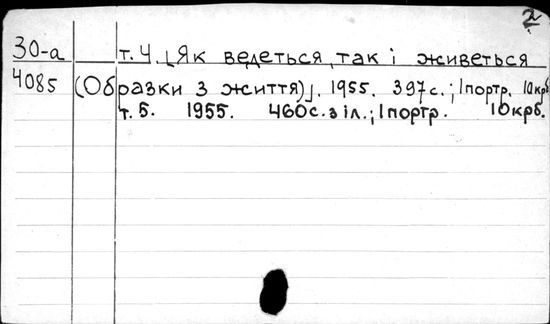 2
30-а т. 4. [Як ведеться, так і живеться
4085 (Образки з життя)]. 1955. 397с.; 1портр. 10крб.
т. 5. 1955. 460с. з іл.; 1портр. 10крб.